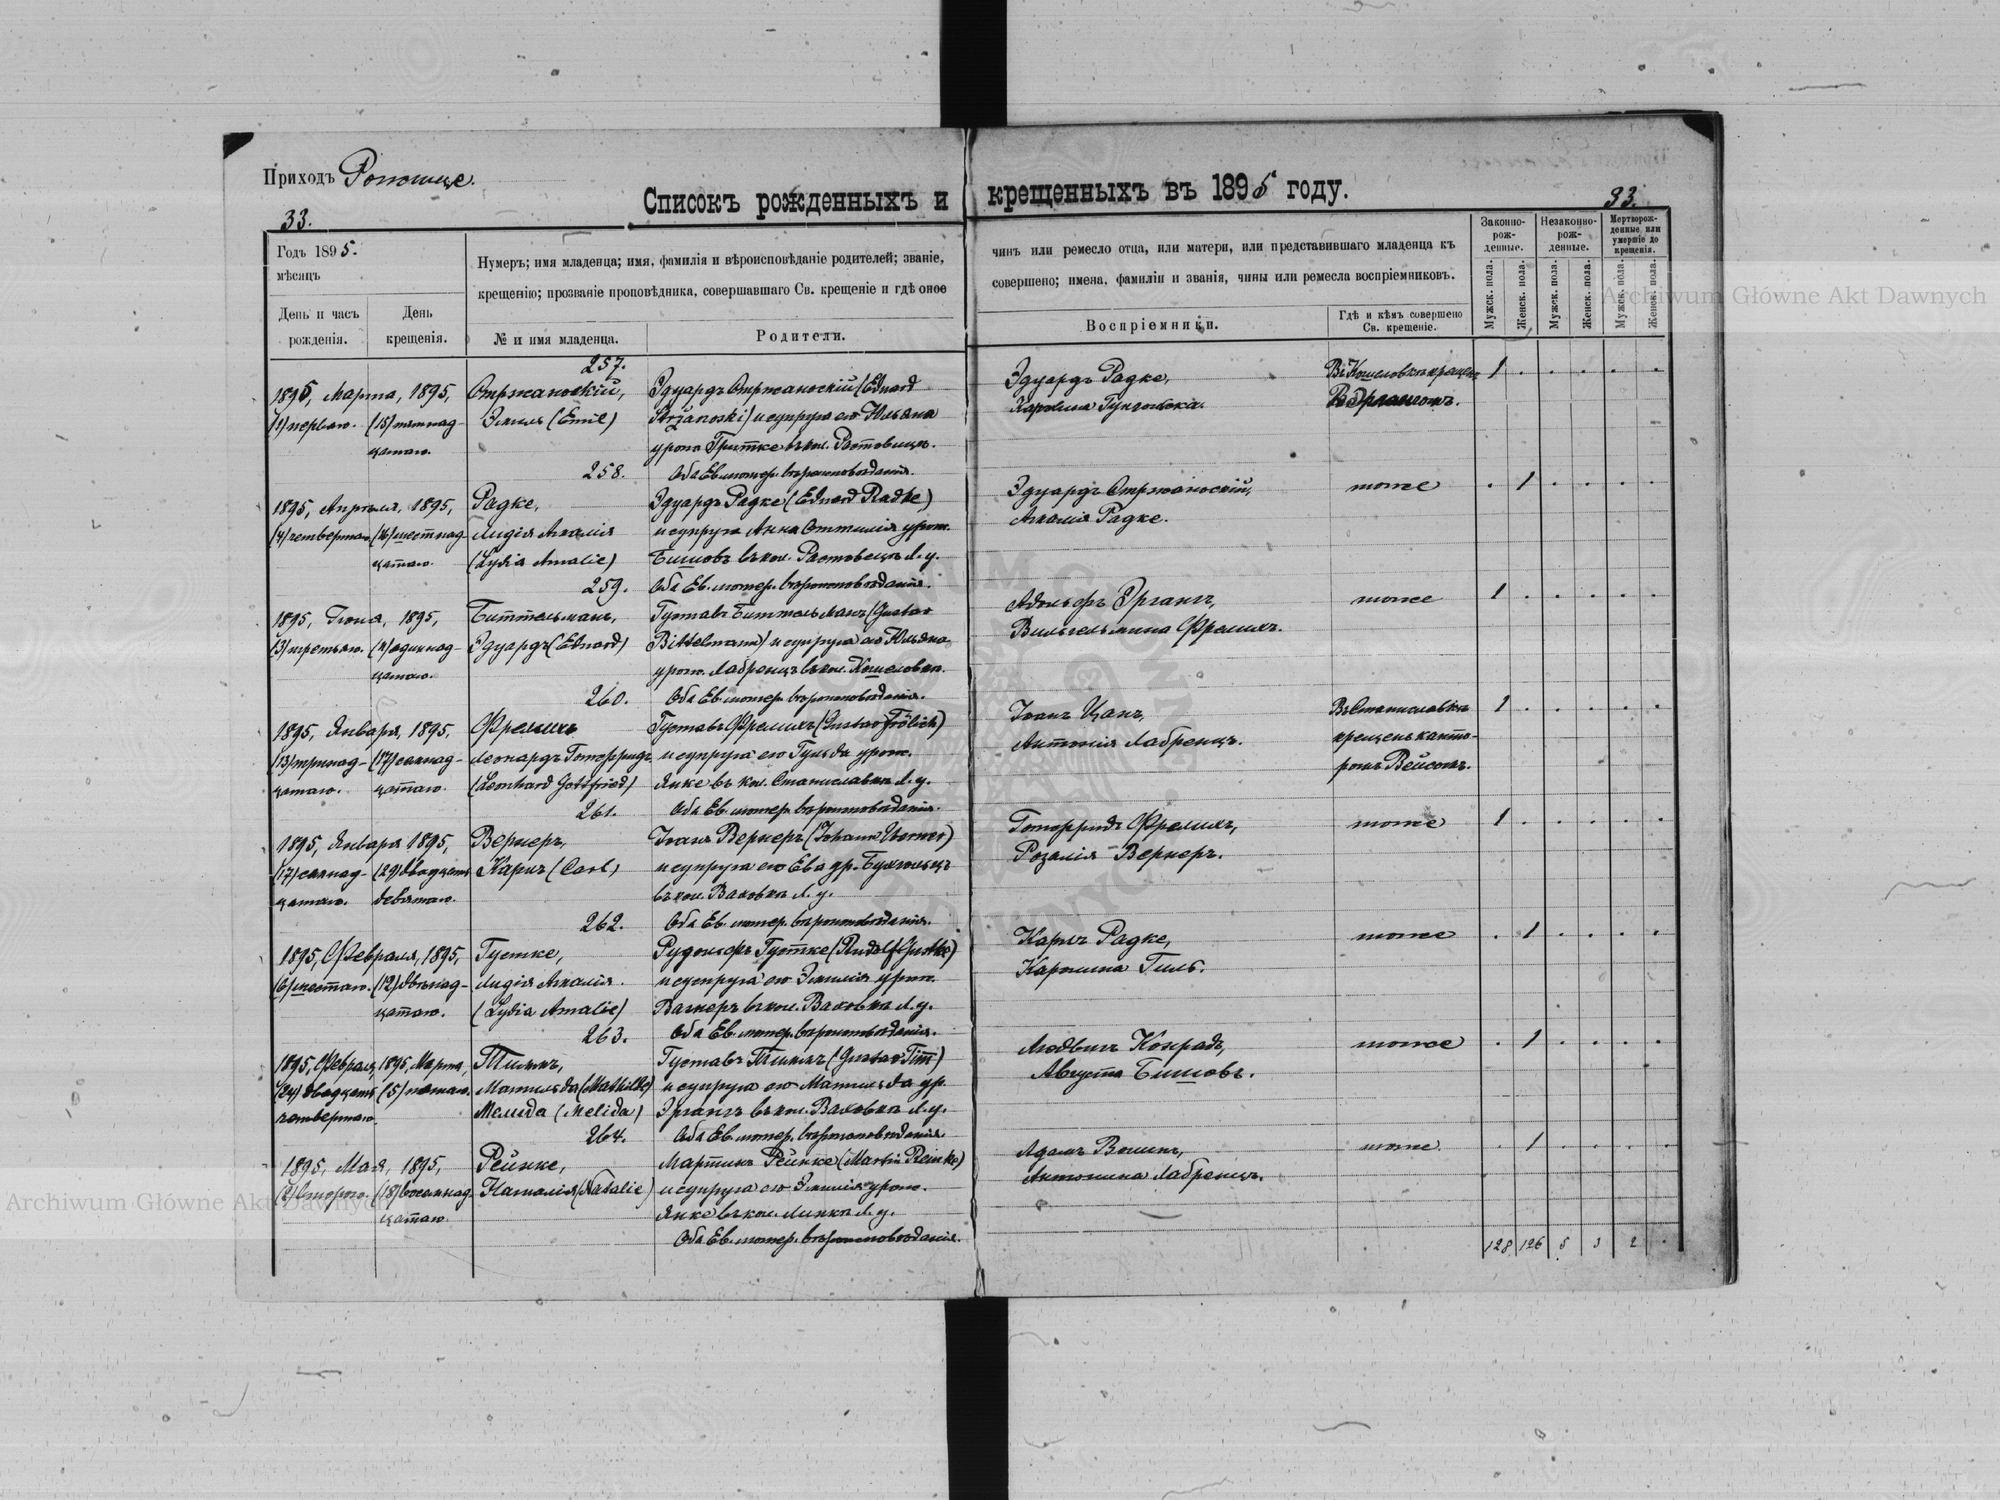 Приходъ Рожище.
Списокъ рожденныхъ и крещенныхъ въ 1895 году.
33.
33.
Годъ 1895.
мѣсяцъ
День и часъ рожденія.
День крещенія.
Нумеръ; имя младенца; имя, фамилія и вѣроисповѣданіе родителей; званіе,
крещенію; прозваніе проповѣдника, совершавшаго Св. крещеніе и гдѣ оное
№ и имя младенца.
Родители.
чинъ или ремесло отца, или матери, или представившаго младенца къ
совершено; имена, фамиліи и званія, чины или ремесла воспріемниковъ.
Воспріемники.
Гдѣ и кѣмъ совершено
Св. крещеніе.
Законно-
рож-
денные.
Незаконно-
рож-
денные.
Мертворож-
денные или
умершіе до
крещенія.
Мужск. пола.
Женск. пола.
Мужск. пола.
Женск. пола.
Мужск. пола.
Женск. пола.
257.
1895, Марта, 1895, Стржаноскій, Эдуардъ Стржаноскій (Eduard Эдуардъ Радке, Въ Кошеловкѣ крещенъ 1
(1) первого. (15) пятнад- Эмиль (Emil) Strżanoski) и супруга его Юльяна Каролина
цатаго. урож. Гритке въ кол.
258. Оба Ев. лютер. вѣроисповѣданія.
1895, Апрѣля, 1895, Радке, Эдуардъ Радке (Eduard Radke) Эдуардъ Стржаноскій, тоже 1
(4) четвертаго (16) шестнад- Лидія Амалія и супруга Анна Оттилія урож. Амалія Радке.
цатаго. (Lydia Amalie) Бишовъ въ кол. Л. у.
259. Оба Ев. лютер. вѣроисповѣданія.
1895, Іюня, 1895, Биттельманъ, Густавъ Биттельманъ (Gustav Адольфъ Эргангъ, тоже 1
(3) третьяго. (11) одиннад- Эдуардъ (Eduard) Bittelmann) и супруга его Юльяна Вильгельмина Фрелихъ.
цатаго. урож. Лабренцъ въ кол. Кошеловка.
260. Оба Ев. лютер. вѣроисповѣданія.
1895, Января, 1895, Фрелихъ Густавъ Фрелихъ (Gustav Frölich) Іоганъ Цанъ, Въ Станиславкѣ 1
(13) тринад- (17) семнад- Леонардъ Готфридъ и супруга его Гульда урож. Антонія Лабренцъ. крещенъ канто-
цатаго. цатаго. (Leonhard Gottfried) Янке въ кол. Станиславкѣ Л. у. ромъ Вейсомъ.
261. Оба Ев. лютер. вѣроисповѣданія.
1895, Января 1895, Вернеръ, Іоганъ Вернеръ (Johann Werner) Готфридъ Фрелихъ, тоже 1
(17) семнад- (29) двадцать Карлъ (Carl) и супруга его Ева ур. Бухгольцъ Розалія Вернеръ.
цатаго. девятаго. въ кол. Ваковкѣ Л. у.
262. Оба Ев. лютер. вѣроисповѣданія.
1895, Февраля, 1895, Густке, Рудольфъ Густке (Rudolf Gustke) Карлъ Радке, тоже 1
(6) шестаго. (12) двѣнад- Лидія Амалія. и супруга его Эмилія урож. Каролина Гиль.
цатаго. (Lydia Amalie) Вагнеръ въ кол. Ваковкѣ Л. у.
263. Оба Ев. лютер. вѣроисповѣданія.
1895, Февраля, 1895, Марта, Тиммъ, Густавъ Тиммъ (Gustav Timm) Людвигъ Конрадъ, тоже 1
(24) двадцать (5) пятаго. Матильда (Mathilde) и супруга его Матильда ур. Августа Бишовъ.
четвертаго. Мелида (Melida) Эргангъ въ кол. Ваковкѣ Л. у.
264. Оба Ев. лютер. вѣроисповѣданія.
1895, Мая, 1895, Рейнке, Мартинъ Рейнке (Martin Reinke) Адамъ тоже 1
(2) второго. (18) восемнад- Наталія (Natalie) и супруга его Эмилія урож. Антонина Лабренцъ.
цатаго. Янке въ кол. Липкѣ Л. у.
Оба Ев. лютер. вѣроисповѣданія.
128 126 5 3 2
Archiwum Główne Akt Dawnych
Archiwum Główne Akt Dawnych